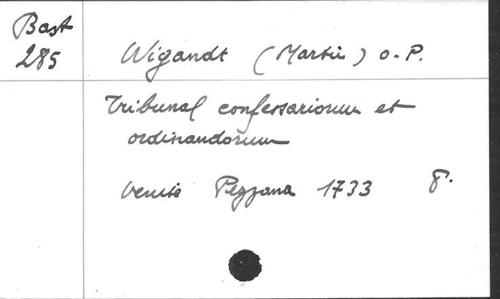 Bast
285
Wigandt (Martin) O.P.
Tribunal confessariorum et
ordinandorum
Venise Pezzana 1733 8°.